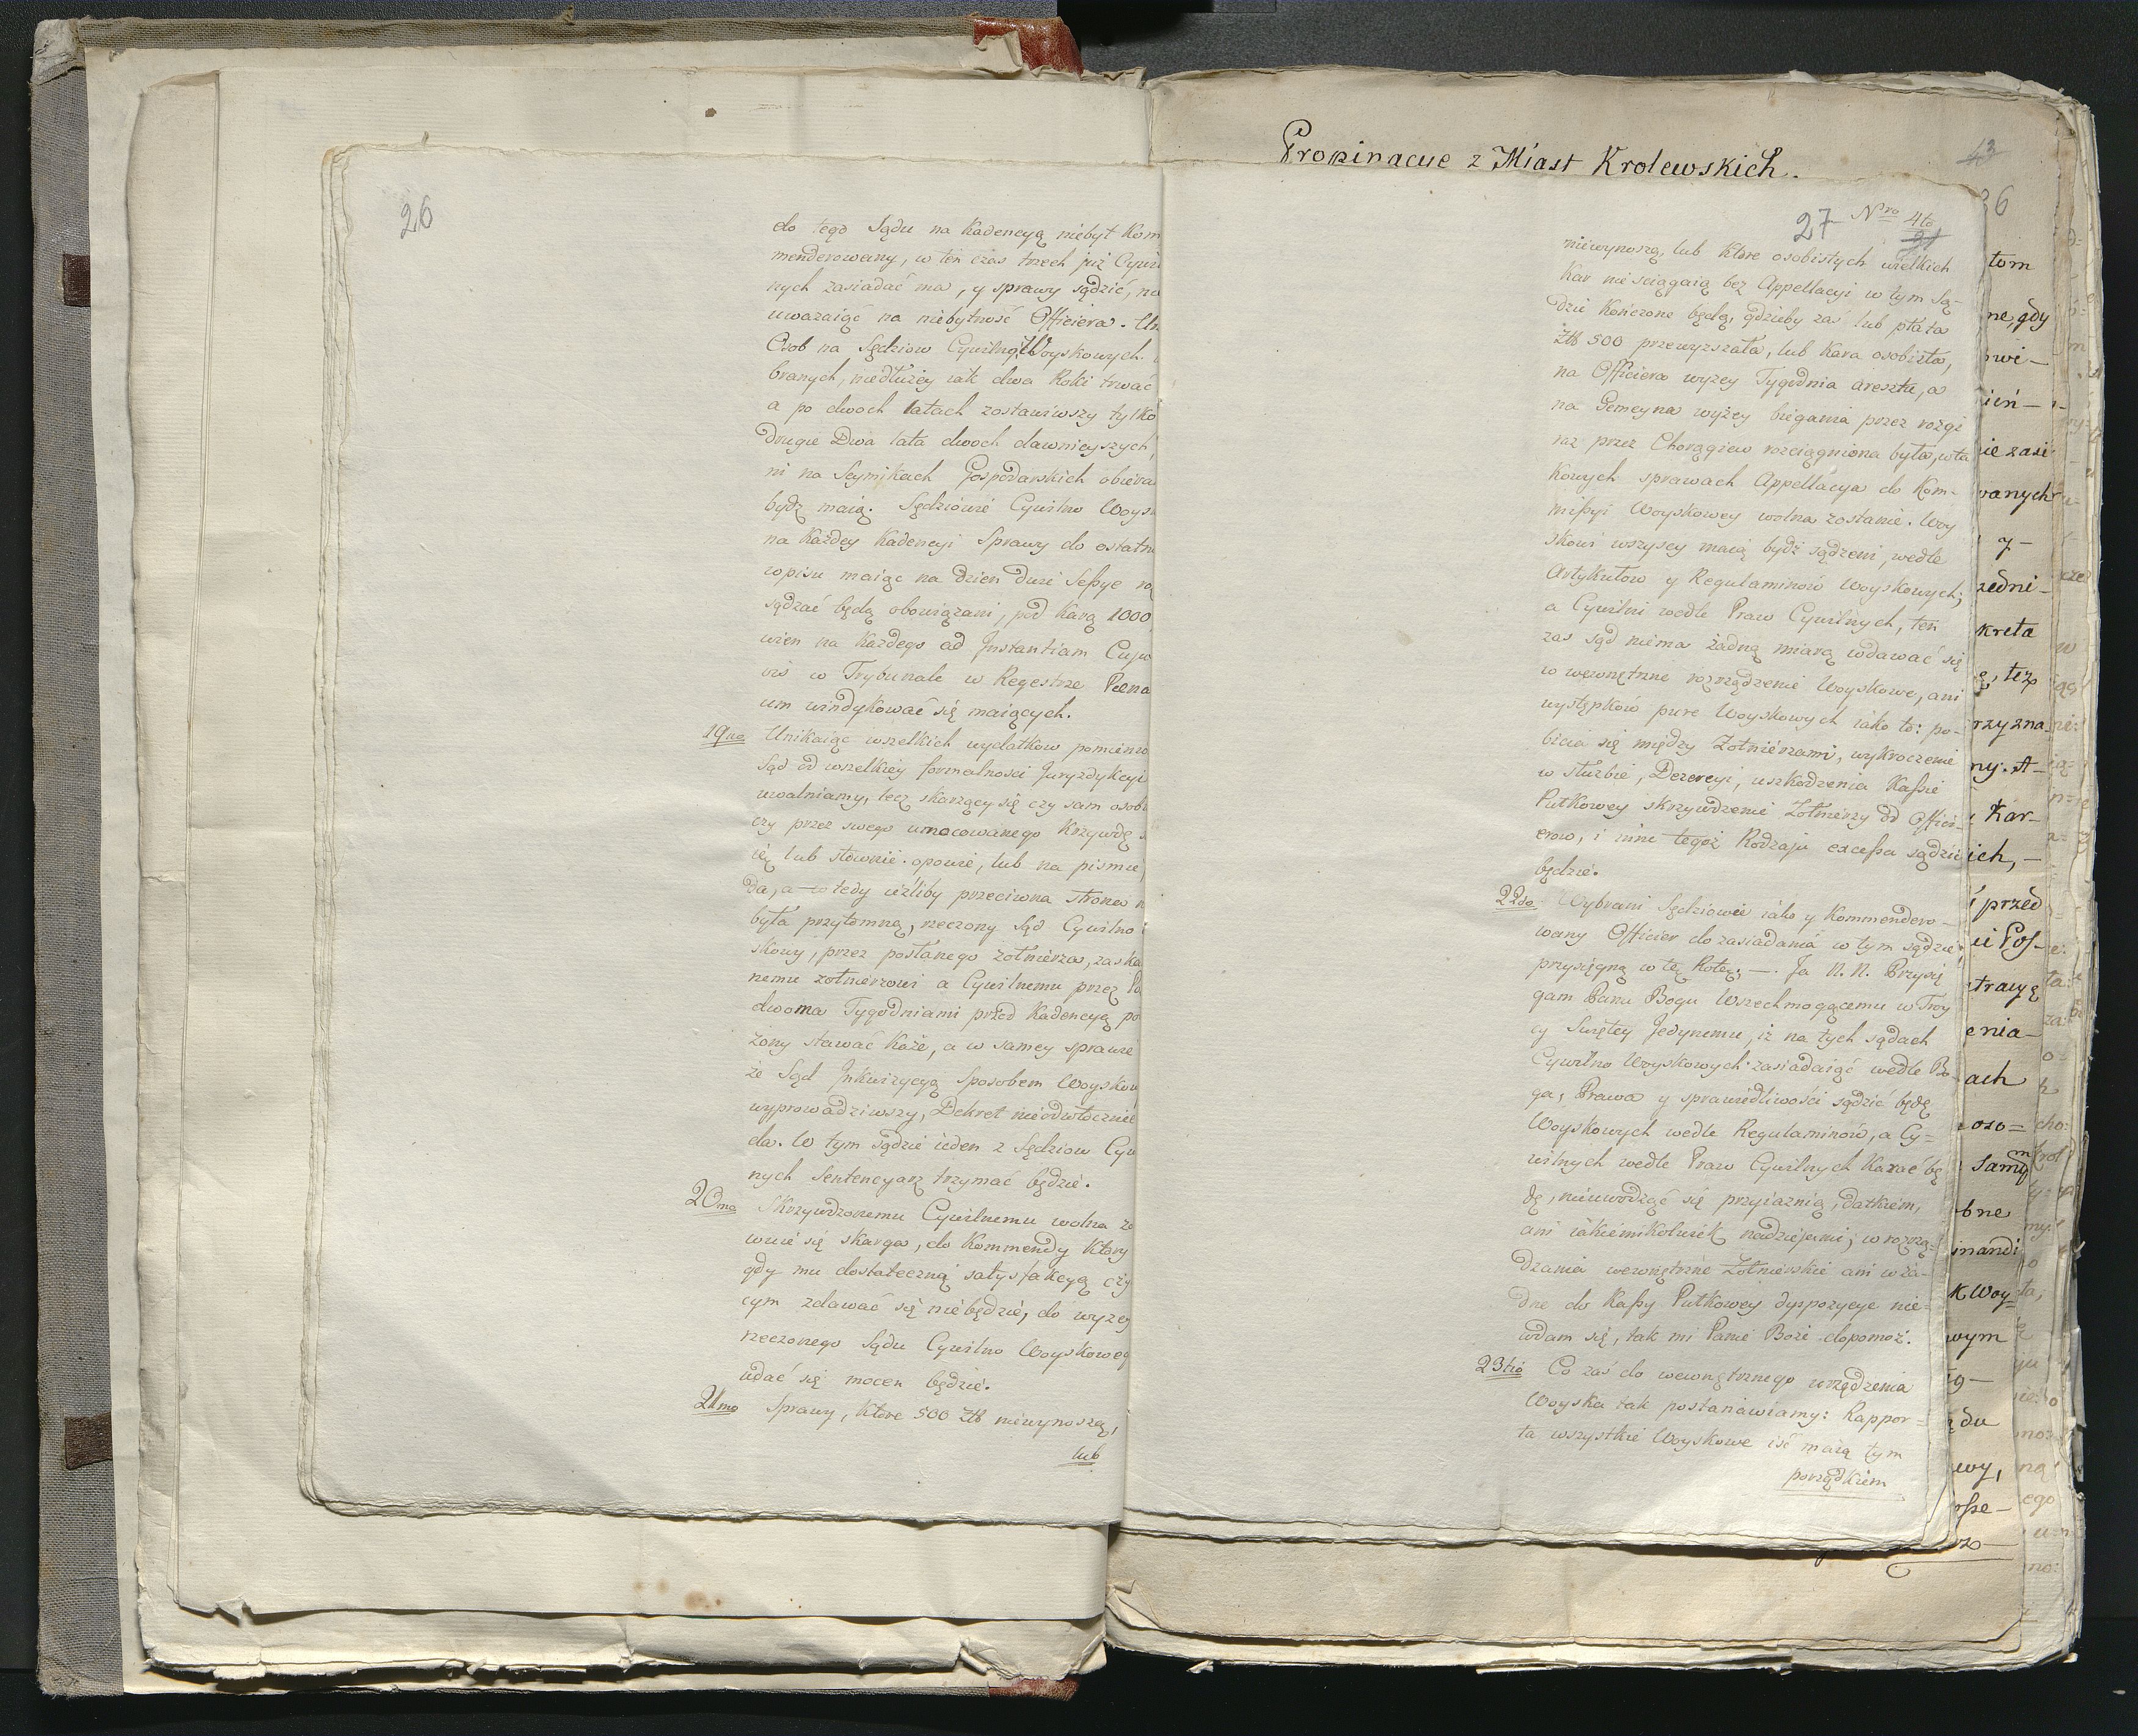 26
do tego Sądu na Kadencyą niebyt Kom
menderowany, w ten czas trzech już Cywil
nych zasiadać ma, y sprawy sądzić, nie
uwazaiąc na niebytność Officiera.
Osob na Sędziow Cywilno Woyskowych
branych, niedłużey iak dwa Roki trwać
a po dwoch latach zostawiwszy tylko
drugie Dwa lata dwoch dawnieyszych,
ni na Seymikach Gospodarskich obiera
bydz maią. Sędziowie Cywilno Woys
na Każdey Kadencyi Sprawy do ostatn
wpisu maiąc na dzien dwie Seßye
sądzać będą obowiązani, pod Karą 1000
wien na Każdego ad Instantiam Cujus
vis w Trybunale w Regestrze Poena
um windykować się maiących.
19no Unikaiąc wszelkich wydatkow pomienio
Sąd od wszelkiey formalnosci Juryzdykcyi
uwalniamy, lecz skarzący się czy sam osobi
czy przez swego umocowanego Krzywdę
ię lub słownie opowie, lub na pismie
da, a wtedy ieżliby przeciwna strona n
była przytomną, rzeczony Sąd Cywilno
skowy, przez posłanego żołnierza, zaska
nemu żołnierzowi a Cywilnemu przez
dwoma Tygodniami przed Kadencyą po
żony stawać Każe, a w samey sprawie
że Sąd Inkwizycyą Sposobem Woyskow
wyprowadziwszy, Dekret nieodwłocznie
da. W tym Sądzie ieden z Sędziow Cyw
nych Sentencyarz trzymać będzie.
20mo Skrzywdzonemu Cywilnemu wolna zo
wuie się skarga, do Kommendy Ktory
gdy mu dostateczną satysfakcyą czy
cym zdawać się niebędzie, do wyzey
rzeczonego Sądu Cywilno Woyskoweg
udać się mocen będzie.
21mo Sprawy, Ktore 500 Złł niewynoszą,
lub
Propinacye z Miast Krolewskich.
43
27 Nro 4to
21
niewynoszą, lub Ktore osobistych wielkich
Kar nie sciągaią bez Appellacyi w tym Są-
dzie Kończone będą, gdzieby zaś lub płata
Złł 500 przewyzszała, lub Kara osobista,
na Officiera wyzey Tygodnia aresztu, a
na Gemeyna wyżey biegania przez rozgi
raz przez Chorągiew rozciągniona była, w ta
Kowych sprawach Appellacya do Kom-
mißyi Woyskowey wolna zostanie. Woy
skowi wszyscy maią bydź sądzeni, wedle
Artykułow y Regulaminow Woyskowych;
a Cywilni wedle Praw Cywilnych, ten
zas sąd niema żadną miarą wdawać się
w wewnętrzne rozrządzenie Woyskowe, ani
występków pure Woyskowych iako to: po-
bicia się między Żołnierzami, wykroczenie
w służbie, Dezercyi, uszkodzenia Kaßie
Pułkowey skrzywdzenie Żołnierzy od Offici-
erow, i inne tegoż Rodzaju exceßa sądzić
będzie.
22do Wybrani Sędziowie iako y Kommendero-
wany Officier do zasiadania w tym sądzie,
przysięgną w tę Rotę. —. Ja N. N. Przysię
gam Panu Bogu Wszechmogącemu w Troy
cy Swiętey Jedynemu, iż na tych sądach
Cywilno Woyskowych zasiadaiąc wedle Bo
ga, Prawa y sprawiedliwości sądzić będę
Woyskowych wedle Regulaminów, a Cy=
wilnych wedle Praw Cywilnych Karać bę
dę, nieuwodząc się przyiaznią, datkiem,
ani iakiemikolwiek nadziejami; w rozrzą-
dzania wewnętrzne Żołnierskie ani w ża-
dne do Kaßy Pułkowey dyspozycye nie-
wdam się, tak mi Panie Boże dopomoż.
23tio Co zaś do wewnętrznego urzędzenia
Woyska tak postanawiamy: Rappor=
ta wszystkie Woyskowe iść maią tym
porządkiem